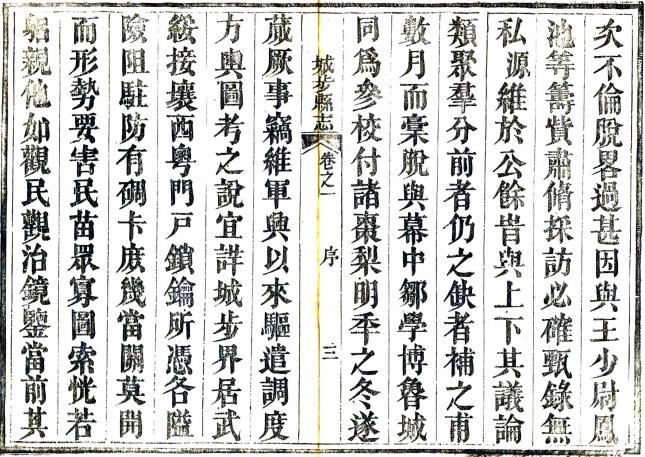 次不倫脫畧過甚因與王少尉鳳
池等籌貲肅脩採訪必確甄錄無
私源維於公餘旹與上下其議論
類聚羣分前者仍之缺者補之甫
數月而稾脫與幕中鄒學博魯城
同爲參校付諸棗梨明季之冬遂
城步縣志 卷之一 序 三
蕆厥事竊維軍興以來驅遣調度
方輿圖考之說宜詳城步界居武
綏接壤西粵門戶鎖鑰所憑各隘
險阻駐防有碉卡庶幾當關莫開
而形勢要害民苗眾寡圖索恍若
躬親他如觀民觀治鏡鑒當前其